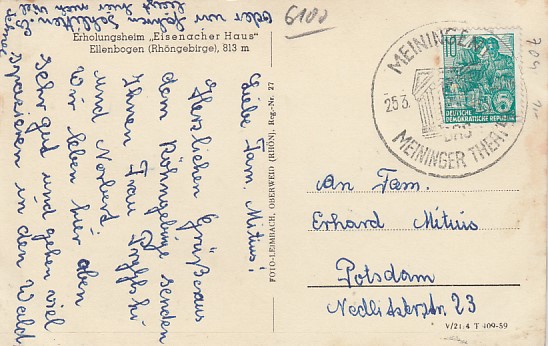 6100
704
Erholungsheim „Eisenacher Haus“
Ellenbogen (Rhöngebirge), 813 m
Liebe Fam. Mitius!
Herzlichen Grüße aus
dem Rhöngebirge senden
Ihnen Frau
und Norbert.
Wir leben hier oben
sehr gut und gehen viel
spazieren in den Wald
oder wir
fahren Schlitten.
liegt hier noch viel
FOTO-LEIMBACH, OBERWEID (RHÖN). Reg.-Nr. 27
MEININGEN
25.3.
DAS
MEININGER THEATER
10
DEUTSCHE
DEMOKRATISCHE REPUBLIK
An Fam.
Erhard Mitius
Potsdam
Nedlitzerstr. 23
V/21/4 T 409-59